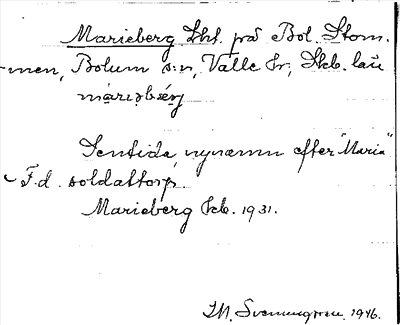 Marieberg Lht. på Bol. Stom-
men, Bolum s:n, Valle hr, Skb. län
Sentida nynamn efter "Maria"
F.d. soldattorp.
Marieberg Ekb. 1931.
I.M. Svenungsson. 1946.